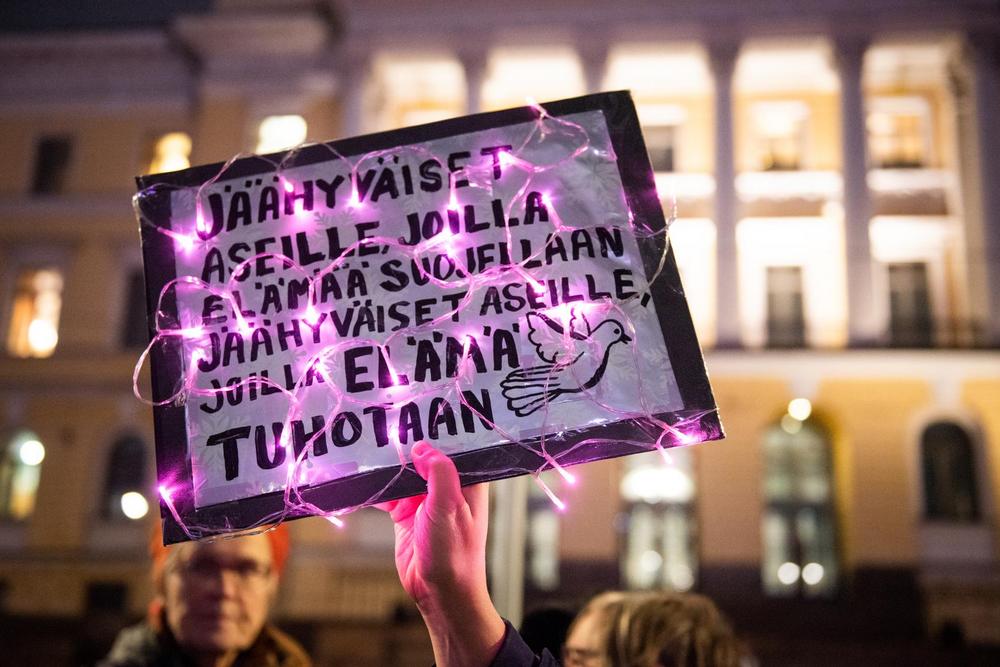 JÄÄHYVÄISET
ASEILLE, JOILLA
ELÄMÄÄ SUOJELLAAN
JÄÄHYVÄISET ASEILLE,
JOILLA ELÄMÄ
TUHOTAAN